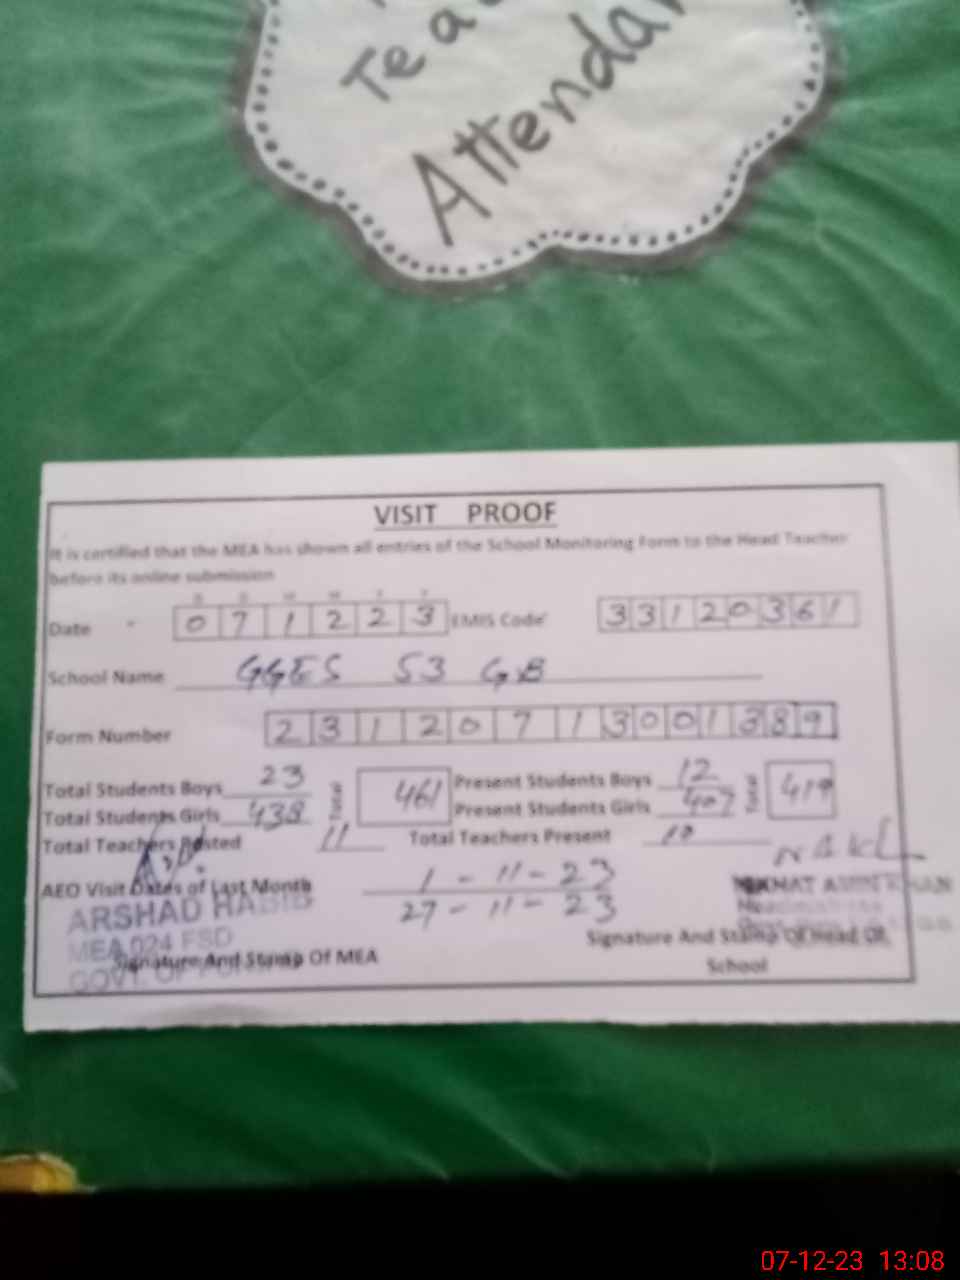 Attendan
VISIT PROOF
It is certified that the MEA has shown all entries of the School Monitoring Form to the Head Teacher
before its online submission
D D M M Y Y
Date 071223 EMIS Code 33120361
School Name GGES 53 GB
Form Number 23120713001389
Total Students Boys 23 Total 461 Present Students Boys 12 Total 419
Total Students Girls 438 Present Students Girls 407
Total Teachers Posted 11 Total Teachers Present 10
AEO Visit Dates of Last Month 1-11-23
27-11-23
ARSHAD HABIB
MEA 024 FSD
GOVT. OF
Signature And Stamp Of MEA
AMIN KHAN
Headmistress
Signature And Stamp Of Head OR
School
07-12-23 13:08